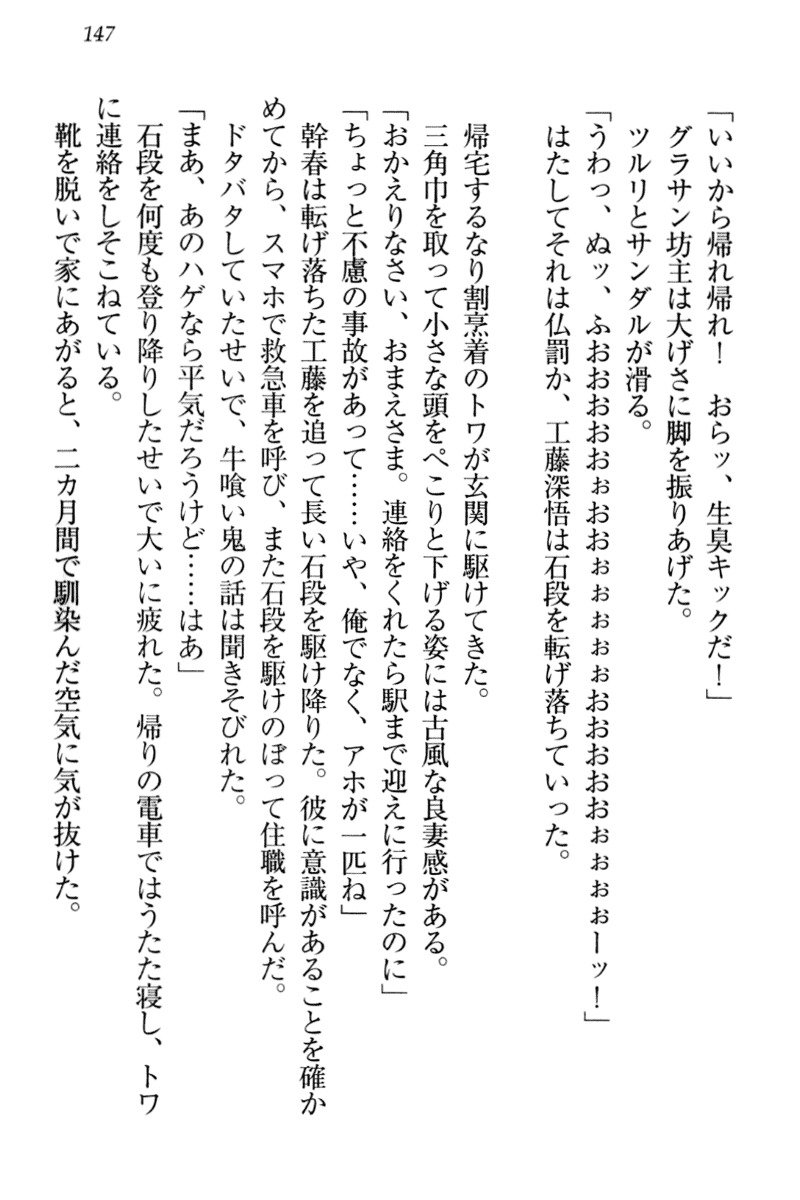 147
「いいから帰れ帰れ！　おらッ、生臭キックだ！」
　グラサン坊主は大げさに脚を振りあげた。
　ツルリとサンダルが滑る。
「うわっ、ぬッ、ふおおおおおぉおおぉぉぉぉぉおおおおおぉぉぉぉーッ！」
　はたしてそれは仏罰か、工藤深悟は石段を転げ落ちていった。
　帰宅するなり割烹着のトワが玄関に駆けてきた。
　三角巾を取って小さな頭をぺこりと下げる姿には古風な良妻感がある。
「おかえりなさい、おまえさま。連絡をくれたら駅まで迎えに行ったのに」
「ちょっと不慮の事故があって……いや、俺でなく、アホが一匹ね」
　幹春は転げ落ちた工藤を追って長い石段を駆け降りた。彼に意識があることを確か
めてから、スマホで救急車を呼び、また石段を駆けのぼって住職を呼んだ。
　ドタバタしていたせいで、牛喰い鬼の話は聞きそびれた。
「まあ、あのハゲなら平気だろうけど……はあ」
　石段を何度も登り降りしたせいで大いに疲れた。帰りの電車ではうたた寝し、トワ
に連絡をしそこねている。
　靴を脱いで家にあがると、二カ月間で馴染んだ空気に気が抜けた。